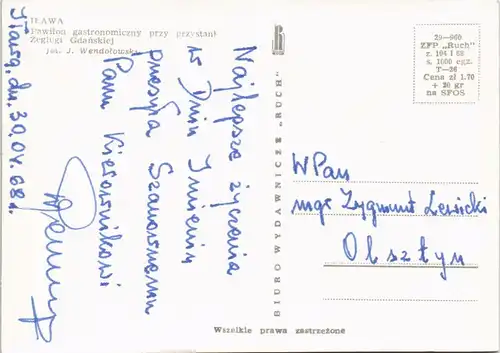 IŁAWA
Pawilon gastronomiczny przy przystani
Żeglugi Gdańskiej
fot. J. Wendołowski
Najlepsze życzenia
w Dniu Imienin
przesyła Szanownemu
Panu Kierownikowi
Iława, dn. 30.04.68 r.
BIURO WYDAWNICZE „RUCH"
29-960
ZFP „Ruch"
z. 104 I 68
n. 1000 egz.
T-36
Cena zł 1.70
+ 20 gr
na SFOS
WPan
mgr Zygmunt Lewicki
Olsztyn
Wszelkie prawa zastrzeżone